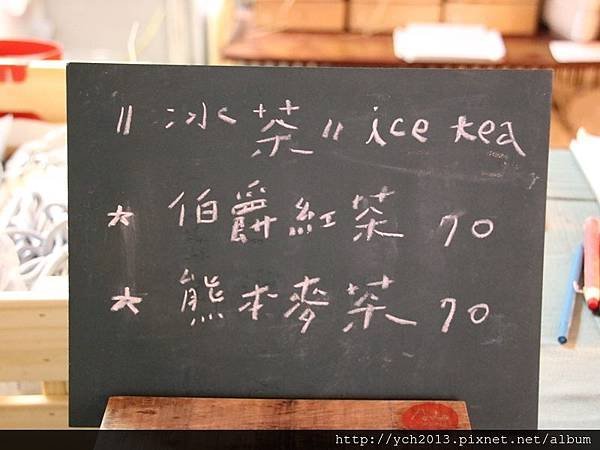 〃冰茶〃ice tea
★伯爵紅茶 70
★熊本麥茶 70
http://ych2013.pixnet.net/album